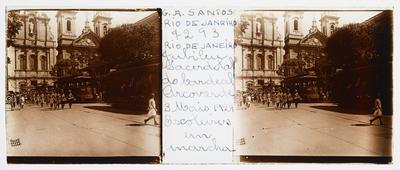 G. A. SANTOS
RIO DE JANEIRO
4293
RIO DE JANEIRO
Jubileu
Sacerdotal
do Cardeal
Arcoverde
3 Maio 1924
Escoteiros
em
marcha